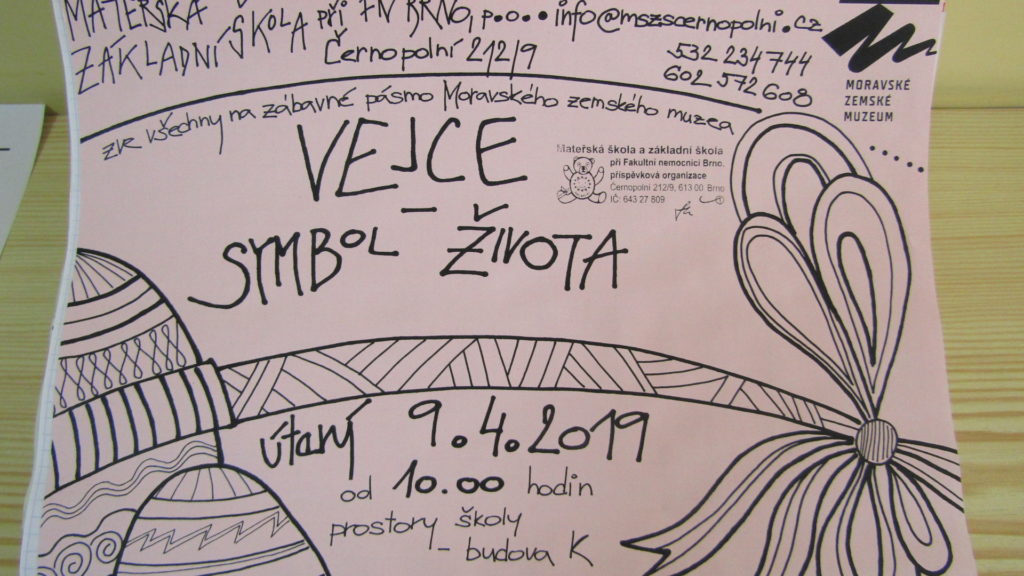 MATEŘSKÁ ŠKOLA při FN BRNO, p.o.. info@mszscernopolni.cz
ZÁKLADNÍ
Černopolní 212/9
532 234 744
602 572 608
MORAVSKÉ
ZEMSKÉ
MUZEUM
zve všechny na zábavné pásmo Moravského zemského muzea
VEJCE
–
SYMBOL ŽIVOTA
Mateřská škola a základní škola
při Fakultní nemocnici Brno,
příspěvková organizace
Černopolní 212/9, 613 00 Brno
IČ: 643 27 809
úterý 9.4.2019
od 10.00 hodin
prostory školy
- budova K